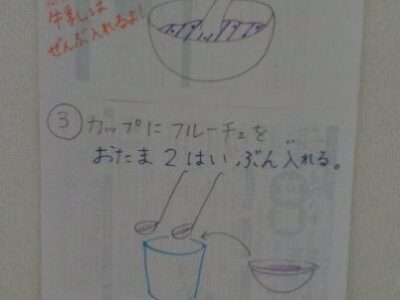 牛乳は
ぜんぶ入れるよ!
③ カップにフルーチェを
おたま2はいぶん入れる。